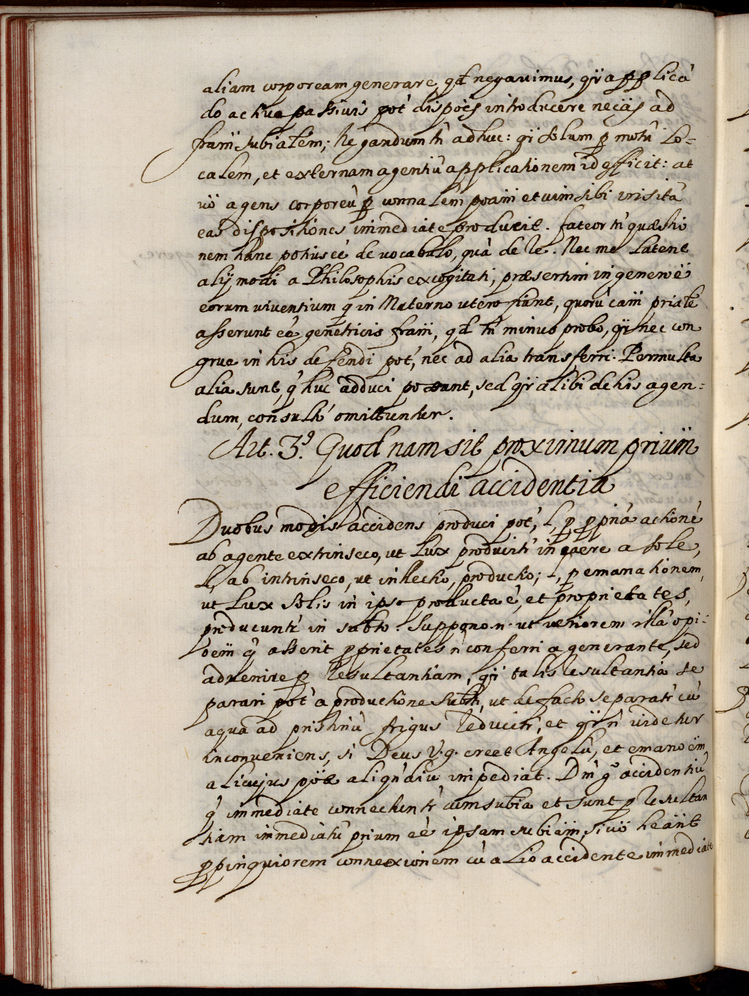 aliam corpoream generare, qd negavimus, qa applicã
do activa passivis pot dispoẽs introducere neciãs ad
fram subialem; Negandum tñ adhuc: qa solum p motũ lo-
calem, et externam agentiũ applicationem id efficit: at
vò agens corporeũ p connalem poam et vim sibi insitã
eas dispositiones immediate producit. fateor tñ quæstio
nem hanc potius eé de vocabulo, quã de re. Nec me latent
alij modi a Philosophis excogitati, præsertim in genere
eorum viventium q in Materno utero fiunt, quorũ cam prialẽ
asserunt eé genetricis fram, qd tñ minus probo, qa nec con
grue in his defendi pot, nec ad alia transferri. Permulta
alia sunt, q huc adduci possant, sed qa alibi de his agen-
dum, consultò omittuntur.
Art. 3.º Quodnam sit proximum prium
efficiendi accidentia
Duobus modis accidens produci pot, l, p ppriã actionẽ
ab agente extrinseco, ut Lux producitr in aere a sole,
l, ab intrinseco, ut intellectio, productio; l, p emanationem,
ut Lux Solis in ipso producta é, et proprietates,
producuntr in subto. Suppono .n. ut veriorem illã opi-
oem q asserit pprietates ñ conferri a generante, sed
advenire p Resultantiam, qa talis resultantia se
parari pot a productione subti, ut de facto separatr cũ
aqua ad pristinũ frigus reducitr, et qa ñ videtur
inconveniens, si Deus v.g. creet Angelũ, et emanoem
alicujus poæ aliqndiu impediat. Dm̃ gº accidentiũ
q immediate connectuntr cum subia et sunt p resultan
tiam immediatũ prium eé ipsam subiam, si vò heant
ppinquiorem connexionem cũ alio accidente immediatẽ